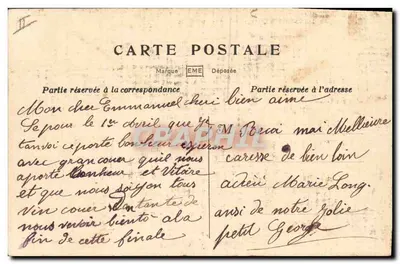 II
CARTE POSTALE
Marque EME Déposée
Partie réservée à la correspondance
Partie réservée à l'adresse
Mon cher Emmanuel cheri bien aimé
Se pour le 1er Avril que je
tanvoi ceporte bonheur esperon
avec grancouer quil nous
aporte bonheur et Vitoire
et que nous soiyon tous
vin couer
nous revoir biento ala
fin de cette finale
M mai Meilleure
caresse de bien loin
adieu Marie Long.
ansi de notre jolie
petit George